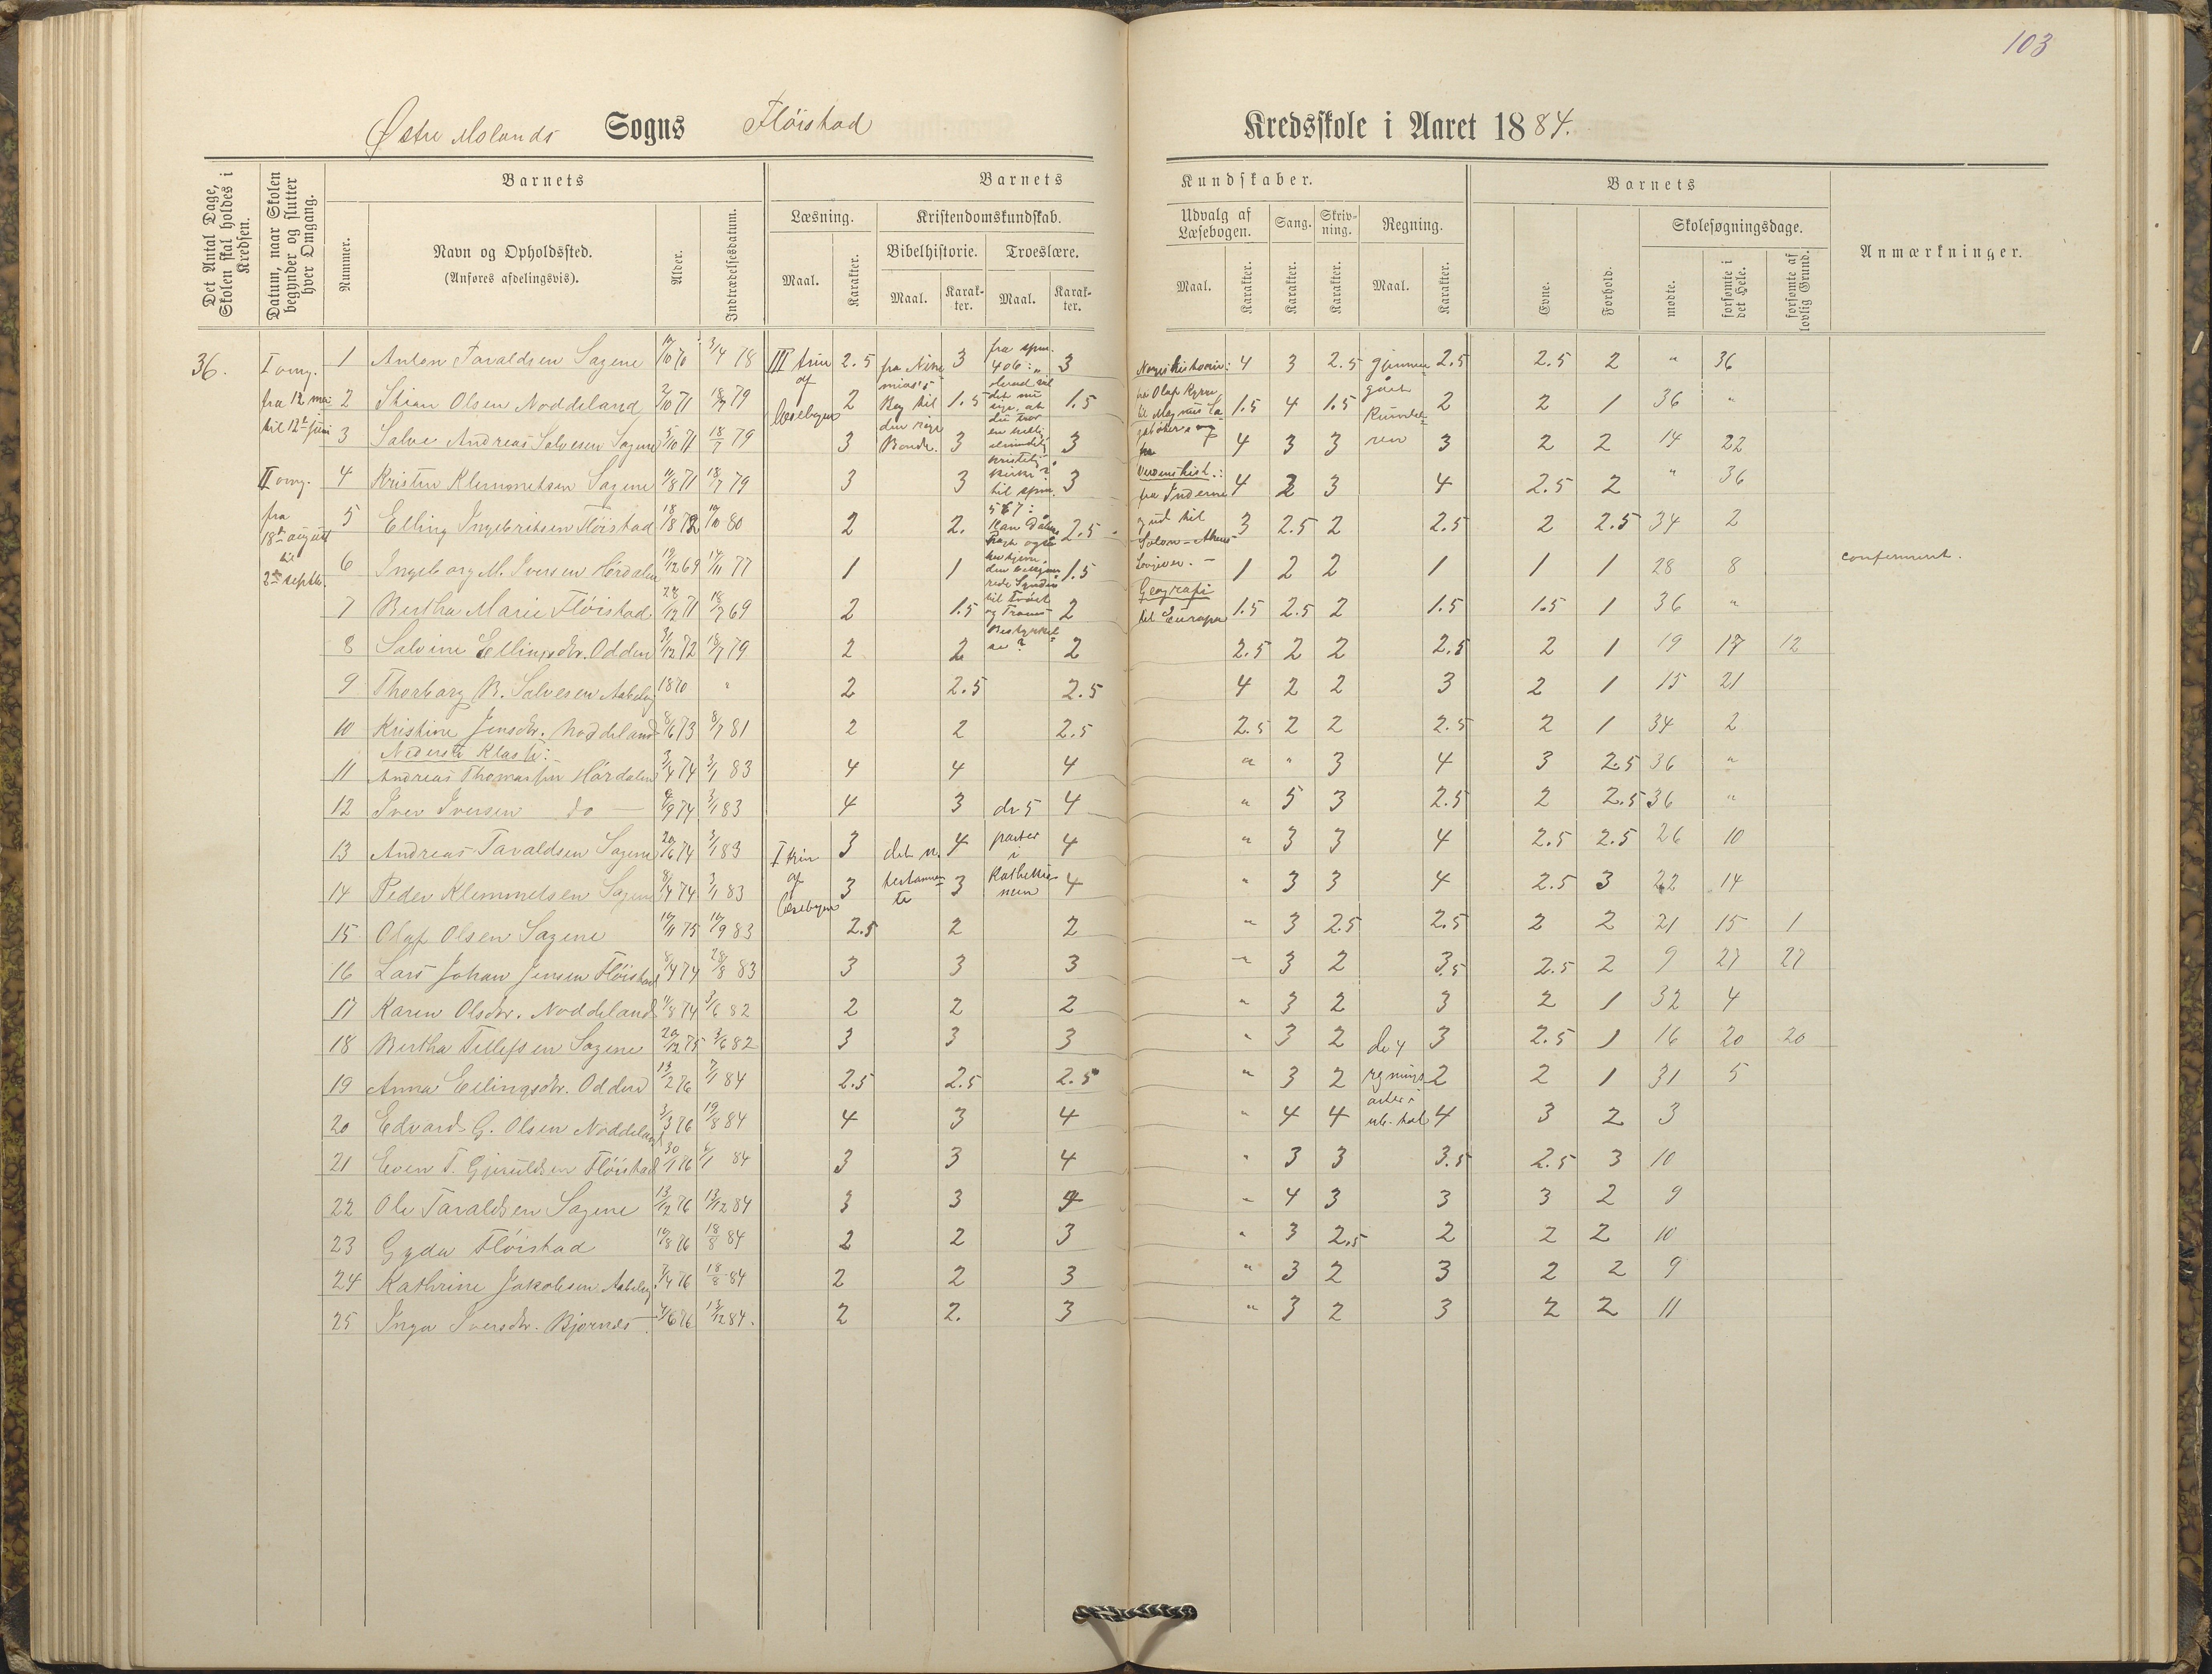 103
Østre Molands Sogns Fløistad Kredsskole i Aaret 1884.
Det Antal Dage, Skolen skal holdes i Kredsen.
Datum, naar Skolen begynder og slutter hver Omgang.
Barnets
Nummer.
Navn og Opholdssted.
(Anføres afdelingsvis).
Alder.
Indtrædelsesdatum.
Barnets Kundskaber.
Læsning.
Maal.
Karakter.
Kristendomskundskab.
Bibelhistorie.
Maal.
Karakter.
Troeslære.
Maal.
Karakter.
Udvalg af Læsebogen.
Maal.
Karakter.
Sang.
Karakter.
Skrivning.
Karakter.
Regning.
Maal.
Karakter.
Barnets
Evne.
Forhold.
Skolesøgningsdage.
mødte.
forsømte i det Hele.
forsømte af lovlig Grund.
Anmærkninger.
36.
I omg.
fra 12 mai
til 12te juni
II omg.
fra
18de august
til
2den septb.
III trin
af
læsebogen
I trin
af
læsebogen
det n.
testamente
de 5
parter
i
Katekismen
Verdenshist.:
Geografi
til Europa
de 4
regningsarter i
ub. tal
1 Anton Tavaldsen Sagene 10/10 70 3/4 78 2.5 3 3 4 3 2.5 2.5 2.5 2 " 36
2 Stian Olsen Noddeland 2/10 71 18/7 79 2 1.5 1.5 1.5 4 1.5 2 2 1 36 "
3 Salve Andreas Salvesen Sagene 5/10 71 18/7 79 3 3 3 4 3 3 3 2 2 14 22
4 Kristen Klemmetsen Sagene 11/8 71 18/7 79 3 3 3 4 2 3 4 2.5 2 " 36
5 Elling Ingebretsen Fløistad 18/8 72 10/10 80 2 2. 2.5 3 2.5 2 2.5 2 2.5 34 2
6 Ingeborg M. Iversen Hørdalen 19/12 69 14/11 77 1 1 1.5 1 2 2 1 1 1 28 8 confirmeret.
7 Bertha Marie Fløistad 28/12 71 18/7 69 2 1.5 2 1.5 2.5 2 1.5 1.5 1 36 "
8 Salvine Ellingsdtr. Odden 31/12 72 18/7 79 2 2 2 2.5 2 2 2.5 2 1 19 17 12
9 Thorborg B. Salvesen 1870 " 2 2.5 2.5 4 2 2 3 2 1 15 21
10 Kristine Jensdtr. Noddeland 8/6 73 8/7 81 2 2 2.5 2.5 2 2 2.5 2 1 34 2
Nederste Klasse:
11 Andreas Thomassen Hørdalen 3/4 74 3/1 83 4 4 4 " " 3 4 3 2.5 36 "
12 Iver Iversen do — 4/9 74 3/1 83 4 3 4 " 5 3 2.5 2 2.5 36 "
13 Andreas Tavaldsen Sagene 20/6 74 3/1 83 3 4 4 " 3 3 4 2.5 2.5 26 10
14 Peder Klemmetsen Sagene 8/4 74 3/1 83 3 3 4 " 3 3 4 2.5 3 22 14
15 Olaf Olsen Sagene 10/11 75 10/9 83 2.5 2 2 " 3 2.5 2.5 2 2 21 15 1
16 Lars Johan Jensen Fløistad 8/4 74 28/8 83 3 3 3 " 3 2 3.5 2.5 2 9 27 27
17 Karen Olsdtr. Noddeland 11/8 74 3/6 82 2 2 2 " 3 2 3 2 1 32 4
18 Bertha Tellefsen Sagene 20/12 75 3/6 82 3 3 3 " 3 2 3 2.5 1 16 20 20
19 Anna Ellingsdtr. Odden 13/2 76 7/1 84 2.5 2.5 2.5 " 3 2 2 2 1 31 5
20 Edvard G. Olsen Noddeland 3/3 76 19/8 84 4 3 4 " 4 4 4 3 2 3
21 Even T. Gjeruldsen Fløistad 30/1 76 6/1 84 3 3 4 " 3 3 3.5 2.5 3 10
22 Ole Tavaldsen Sagene 13/12 76 13/12 84 3 3 4 " 4 3 3 3 2 9
23 Gyda Fløistad 10/8 76 18/8 84 2 2 3 " 3 2.5 2 2 2 10
24 Kathrine Jakobsen 7/4 76 18/8 84 2 2 3 " 3 2 3 2 2 9
25 Inga Iversdtr. Bjørnes 4/6 76 13/12 84. 2 2. 3 " 3 2 3 2 2 11